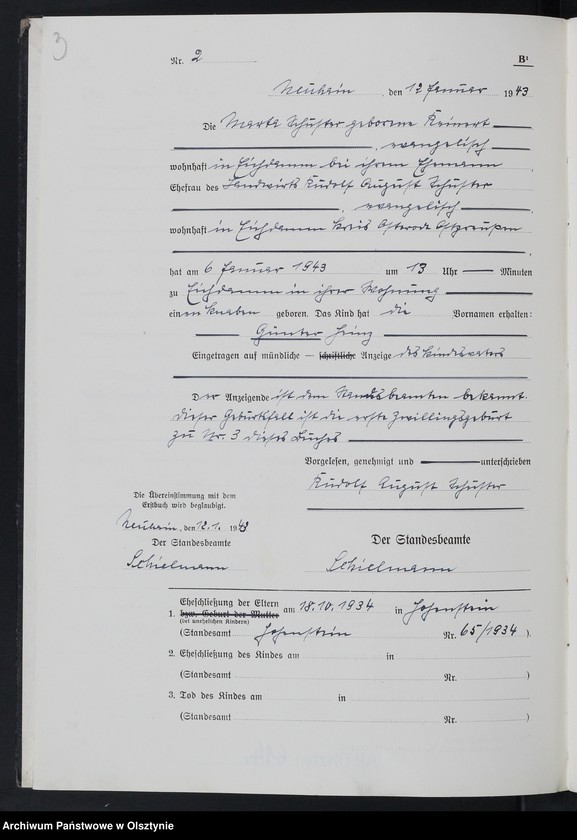 3
Nr. 2
B¹
Neuhain, den 12 Januar 1943
Die Marta Schuster geborene Reinert
, evangelisch
wohnhaft in Eichdamm bei ihrem Ehemann,
Ehefrau des Landwirts Rudolf August Schuster
, evangelisch,
wohnhaft in Eichdamm Kreis Osterode Ostpreußen
hat am 6 Januar 1943 um 13 Uhr — Minuten
zu Eichdamm in ihrer Wohnung
einen Knaben geboren. Das Kind hat die Vornamen erhalten:
Günter Heinz
Eingetragen auf mündliche — schriftliche Anzeige des Kindesvaters
Der Anzeigende ist dem Standesbeamten bekannt.
Dieser Geburtsfall ist die erste Zwillingsgeburt
zu Nr. 3 dieses Buches
Vorgelesen, genehmigt und unterschrieben
Rudolf August Schuster
Die Übereinstimmung mit dem
Erstbuch wird beglaubigt.
Neuhain, den 12.1. 1943
Der Standesbeamte
Schielmann
Der Standesbeamte
Schielmann
1. Eheschließung der Eltern
bzw. Geburt der Mutter
(bei unehelichen Kindern)
am 18.10.1934 in Hohenstein
(Standesamt Hohenstein Nr. 65/1934).
2. Eheschließung des Kindes am in
(Standesamt Nr. )
3. Tod des Kindes am in
(Standesamt Nr. )
Archiwum Państwowe w Olsztynie